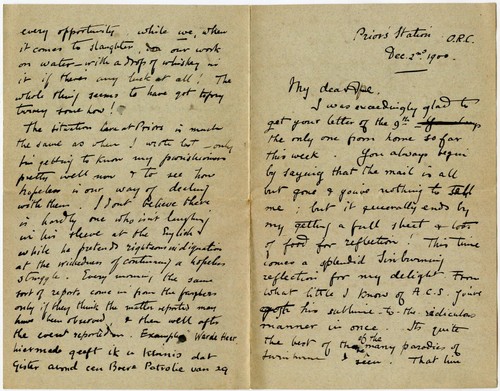 Priors Station O.R.C.
Dec. 2nd 1900.
My dear
I was exceedingly glad to
get your letter of the 9th
the only one from home so far
this week. You always begin
by saying that the mail is all
but gone & you've nothing to tell
me: but it generally ends by
my getting a full sheet & lots
of food for reflection! This time
comes a splendid Swinburning
reflection for my delight. From
what little I know of A.C.S. yours
his sublime-to-the ridiculous
manner in once. Its quite
the best of the many parodies of
Swinburne I of the seen. That line
every opportunity while we, when
it comes to slaughter, do our work
on water - with a drop of whiskey in
it if there's any luck at all! The
whole thing seems to have got topsy
turvey somehow!
The situation here at Priors is much
the same as when I wrote last - only
I'm getting to know my
pretty well now & to see how
hopeless is our way of dealing
with them. I don't believe there
is hardly one who isn't laughing
in his sleeve at the English
while he pretends righteous indignation
at the wickedness of continuing a hopeless
struggle. Every morning the same
sort of reports come in from the farmers
only if they think the matter reported may
have been observed & then well after
the event reported on. Example Waarde Heer
hiermede geeft ik u kennis dat
Gister avond een Boere Patrolie van 29